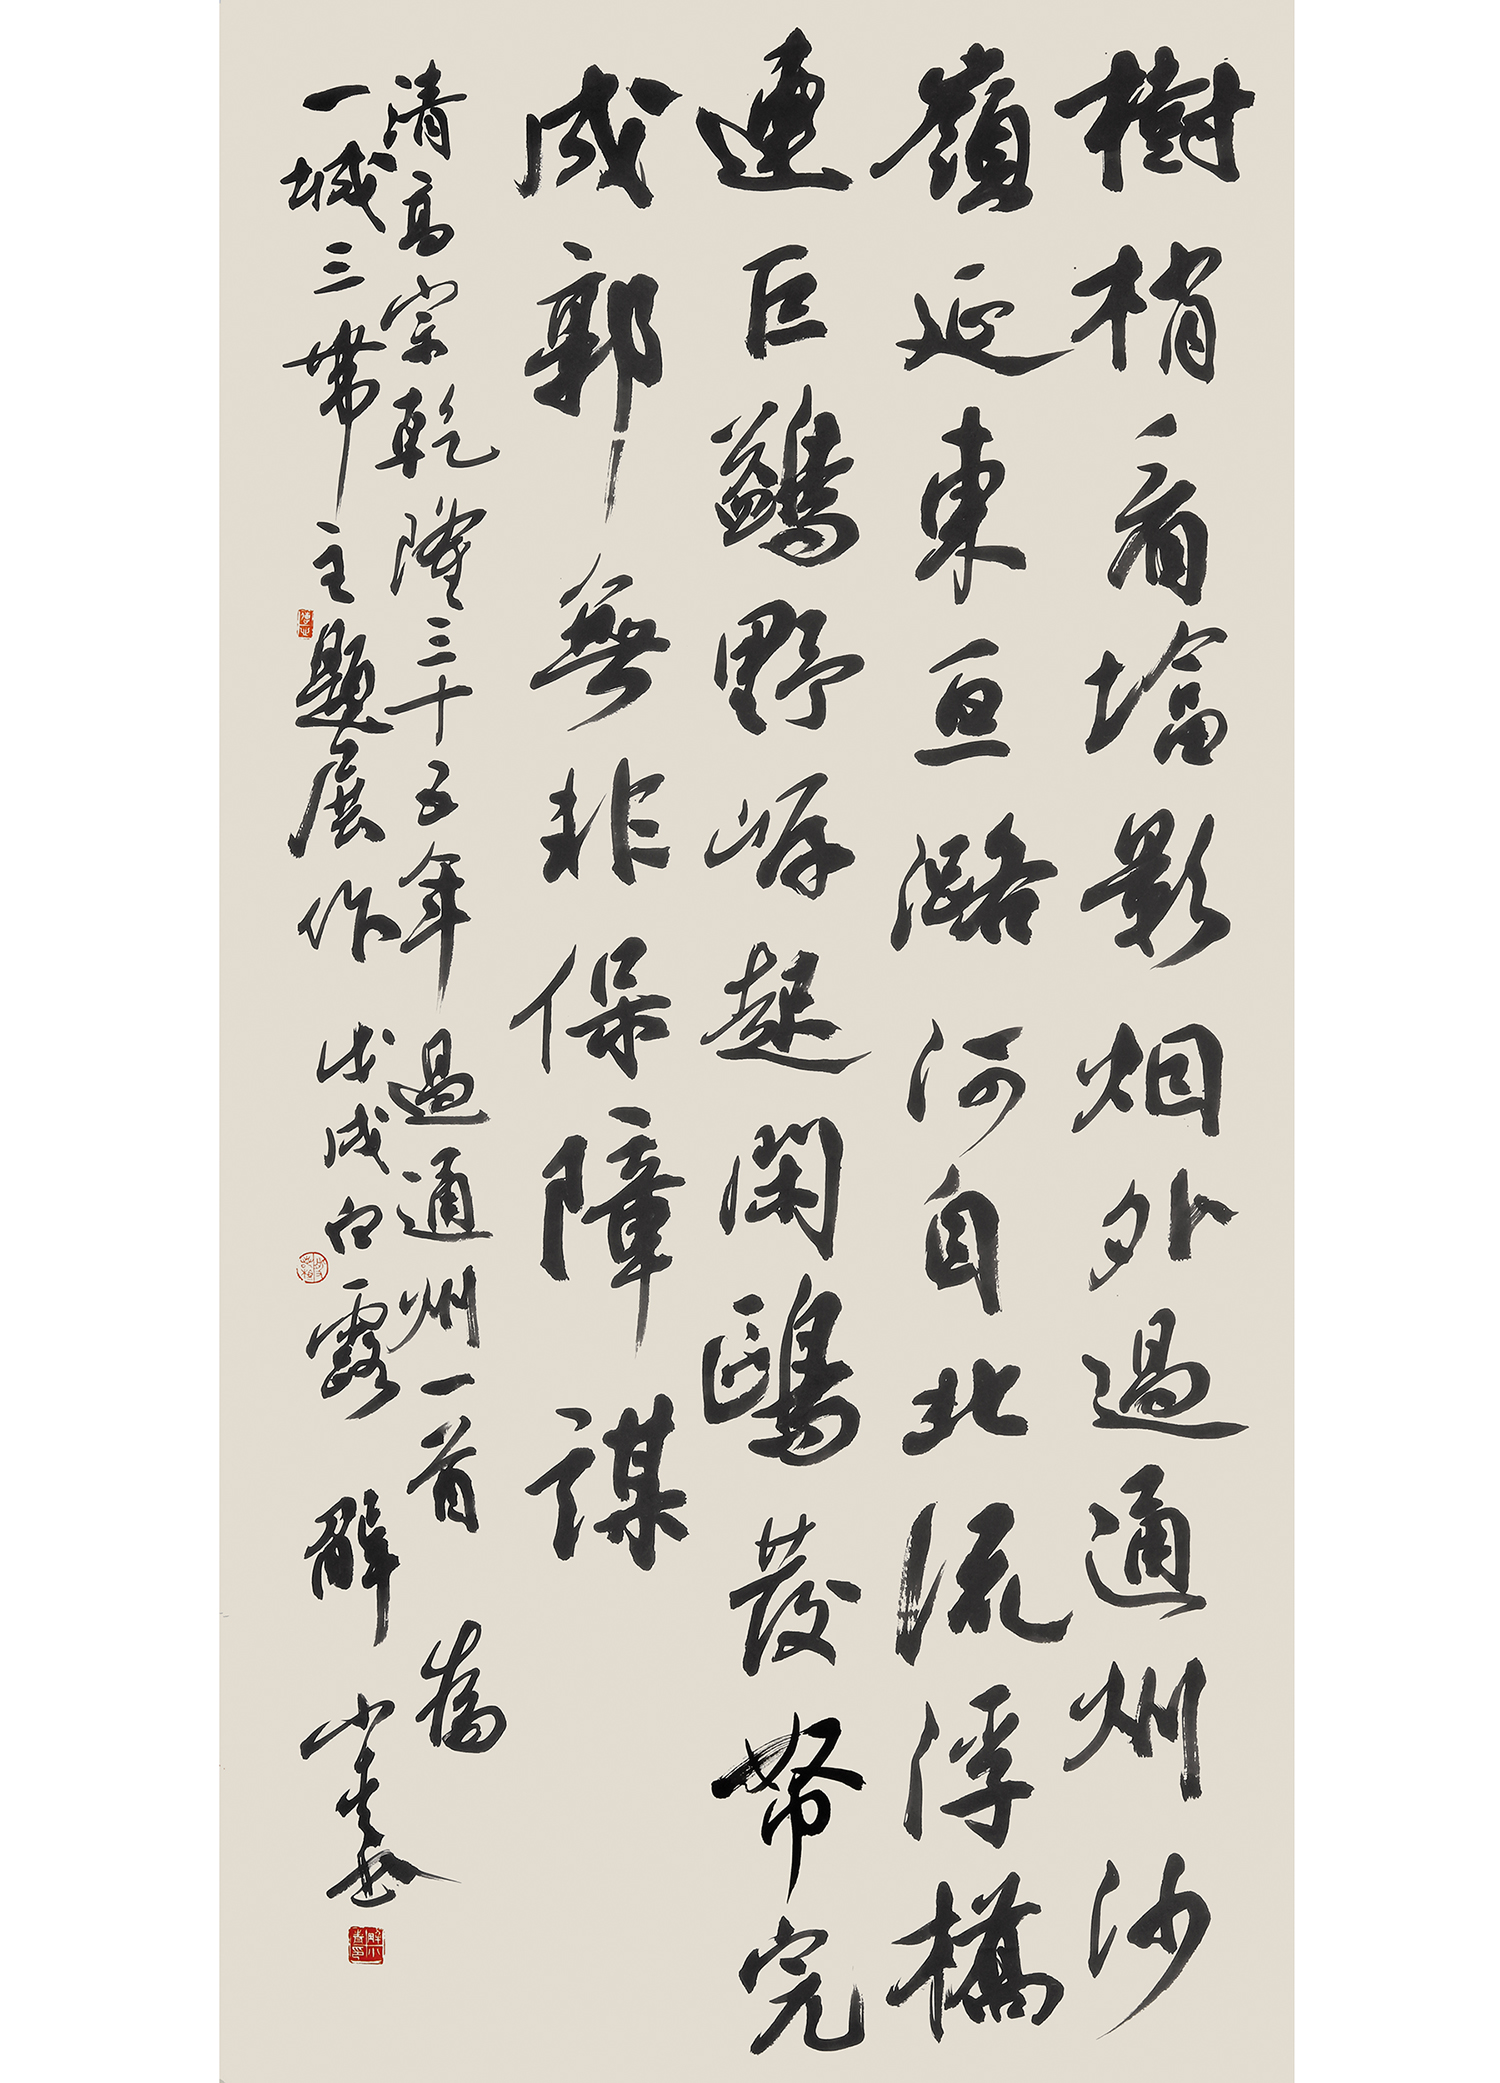 樹梢看墖影烟外過通州沙
嶺延東亘潞河自北流浮橋
連巨鷁野岸起閑鷗發帑完
成郭無非保障謀
清高宗乾隆三十五年過通州一首 為
一城三帶主題展作 戊戌白露 解小青書